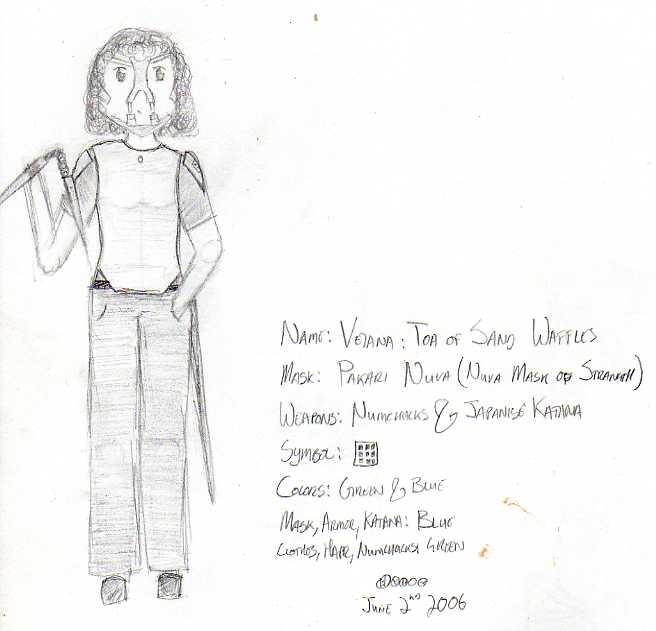 Name: Vejana: Toa of Sand Waffles
Mask: Pakari Nuva (Nuva Mask of Strength)
Weapons: Numchacks & Japanise Katana
Symbol:
Colors: Green & Blue
Mask, Armor, Katana: Blue
Clothes, Hair, Numchacks: Green
June 2nd 2006